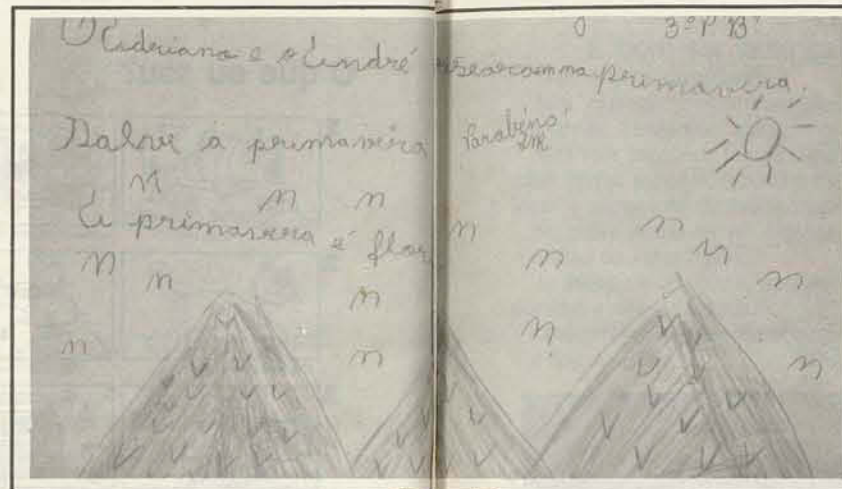 3º P B
Adriana e o André na primavera.
Salve a primavera Parabéns!
A primavera é flor